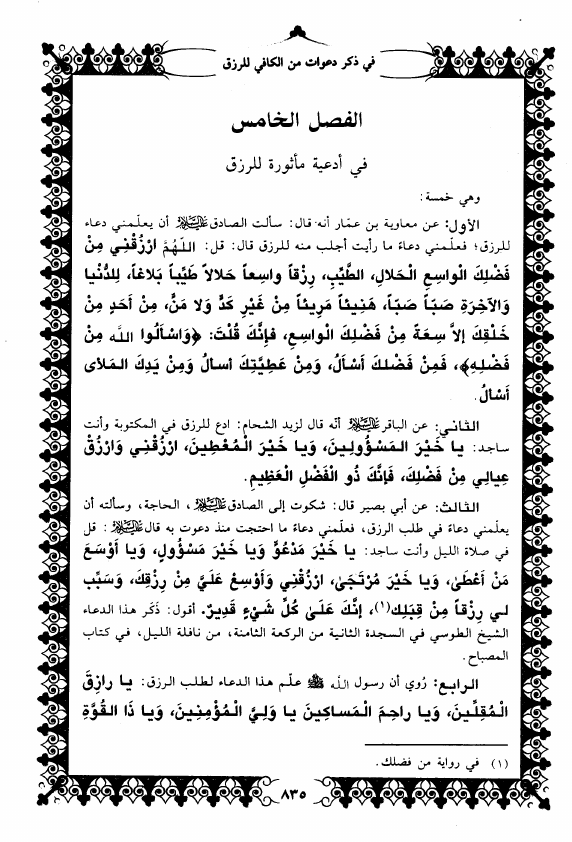 في ذكر دعوات من الكافي للرزق
الفصل الخامس
في أدعية مأثورة للرزق
وهي خمسة:
الأول: عن معاوية بن عمار أنه قال: سألت الصادق عليه السلام أن يعلمني دعاء
للرزق؛ فعلمني دعاءً ما رأيت أجلب منه للرزق قال: قل: اللهُمَّ ارْزُقْني مِنْ
فَضْلِكَ الْواسِعِ الْحَلالِ، الطَّيِّبِ، رِزْقاً واسِعاً حَلالاً طَيِّباً بَلاغاً، لِلدُّنْيا
وَالآخِرَةِ صَبّاً صَبّاً، هَنِيئاً مَرِيئاً مِنْ غَيْرِ كَدٍّ وَلا مَنٍّ، مِنْ أَحَدٍ مِنْ
خَلْقِكَ إلاَّ سِعَةً مِنْ فَضْلِكَ الْواسِعِ، فَإنَّكَ قُلْتَ: ﴿وَاسْأَلُوا الله مِنْ
فَضْلِهِ﴾، فَمِنْ فَضْلكَ أَسْأَلُ، وَمِنْ عَطِيَّتِكَ أسألُ وَمِنْ يَدِكَ المَلأى
أَسْأَلُ.
الثاني: عن الباقر عليه السلام أنّه قال لزيد الشحام: ادع للرزق في المكتوبة وأنت
ساجد: يا خَيْرَ المَسْؤُولِينَ، وَيا خَيْرَ الْمُعْطِينَ، ارْزُقْنِي وَارْزُقْ
عِيالِي مِنْ فَضْلِكَ، فَإنَّكَ ذُو الْفَضْلِ الْعَظِيمِ.
الثالث: عن أبي بصير قال: شكوت إلى الصادق عليه السلام، الحاجة، وسألته أن
يعلمني دعاءً في طلب الرزق، فعلمني دعاءً ما احتجت منذ دعوت به قال عليه السلام: قل
في صلاة الليل وأنت ساجد: يا خَيْرَ مَدْعُوٍّ وَيا خَيْرَ مَسْؤُولٍ، وَيا أوْسَعَ
مَنْ أَعْطَىٰ، وَيا خَيْرَ مُرْتَجَىٰ، ارْزُقْنِي وَأَوْسِعْ عَلَيَّ مِنْ رِزْقِكَ، وَسَبِّبْ
لي رِزْقاً مِنْ قِبَلِكَ(١)، إنَّكَ عَلَىٰ كُلِّ شَيْءٍ قَدِيرٌ. أقول: ذَكَر هذا الدعاء
الشيخ الطوسي في السجدة الثانية من الركعة الثامنة، من نافلة الليل، في كتاب
المصباح.
الرابع: رُوي أن رسول الله ﷺ علّم هذا الدعاء لطلب الرزق: يا رازِقَ
الْمُقِلِّينَ، وَيا راحِمَ الْمَساكِينَ يا وَلِيَّ الْمُؤْمِنِينَ، وَيا ذَا القُوَّةِ
(١) في رواية من فضلك.
٨٣٥